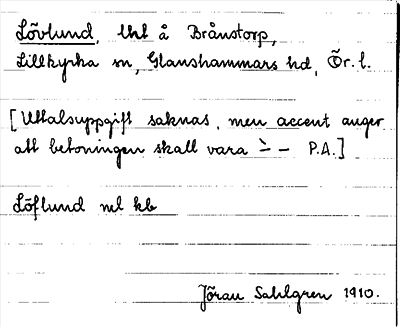 Lövlund, lht å Brånstorp,
Lillkyrka sn, Glanshammars hd, Ör. l.
[Uttalsuppgift saknas, men accent anger
att betoningen skall vara `– – P.A.]
Löflund nel kb
Jöran Sahlgren 1910.